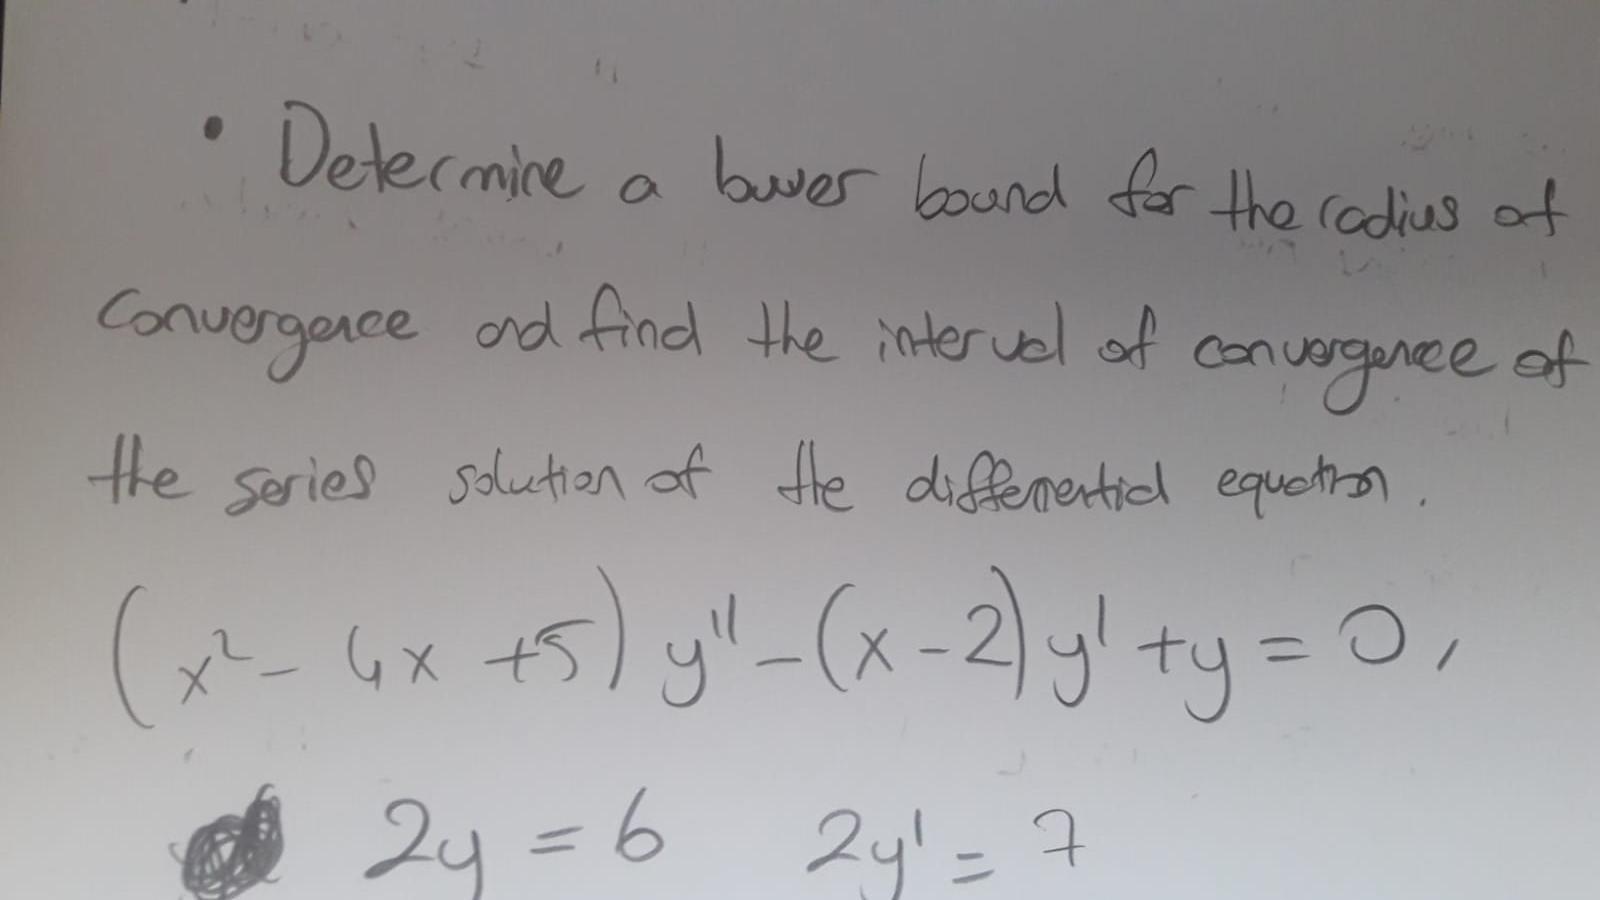 • Determine a lower bound for the radius of
Convergence and find the interval of convergence of
the series solution of the differential equation.
(x² - 4x +5) y'' - (x - 2) y' + y = 0,
2y = 6 2y' = 7